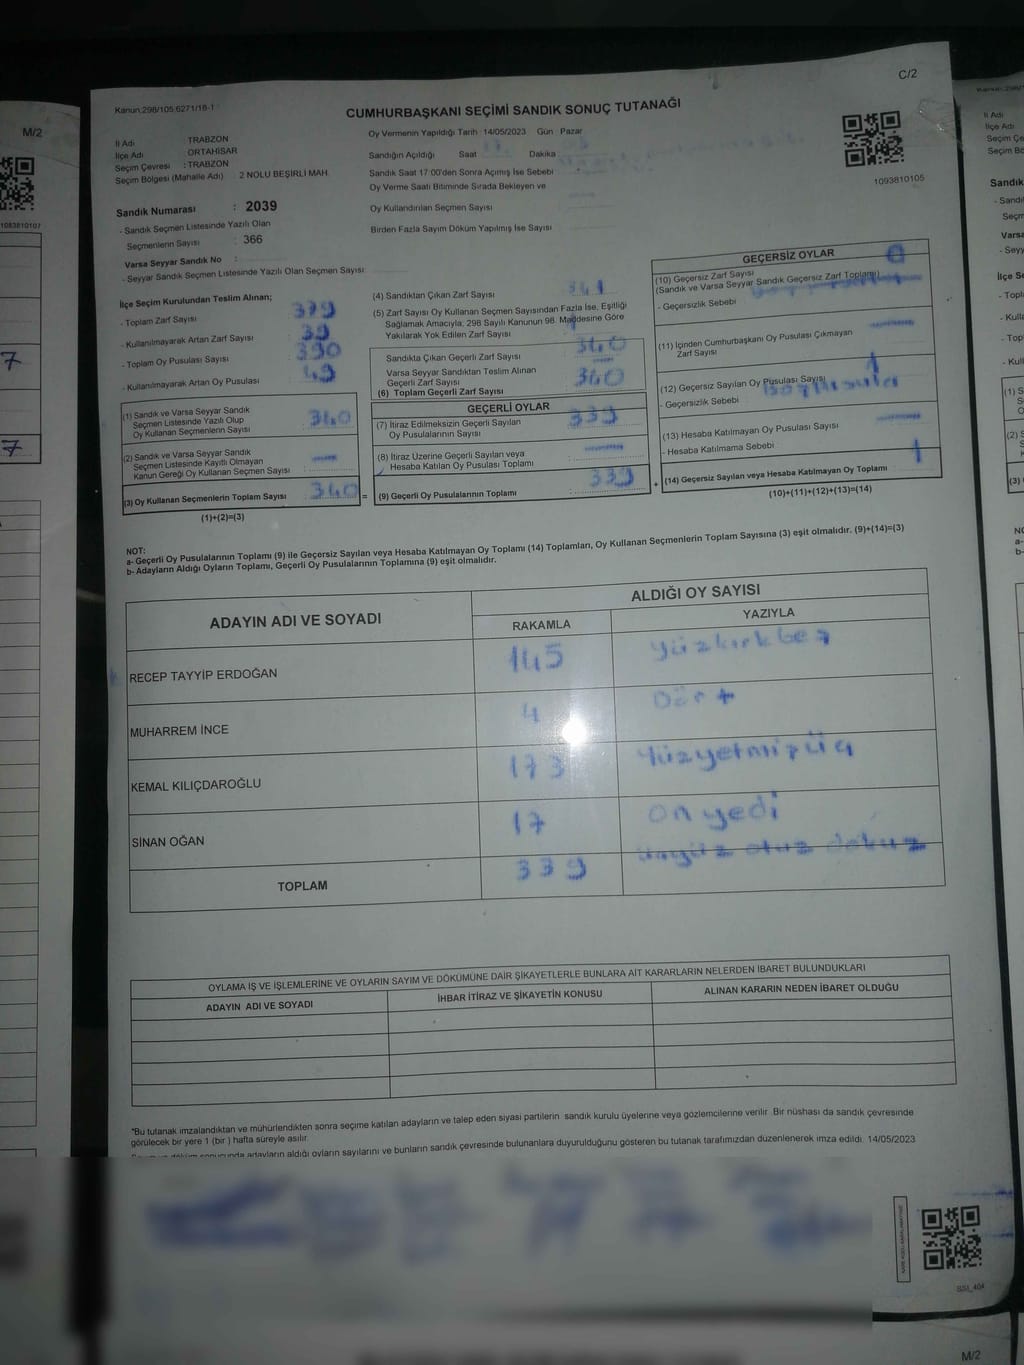 C/2
Kanun:298/105 6271/18-1
CUMHURBAŞKANI SEÇİMİ SANDIK SONUÇ TUTANAĞI
İl Adı : TRABZON
İlçe Adı : ORTAHİSAR
Seçim Çevresi : TRABZON
Seçim Bölgesi (Mahalle Adı) : 2 NOLU BEŞİRLİ MAH.
Sandık Numarası : 2039
- Sandık Seçmen Listesinde Yazılı Olan
Seçmenlerin Sayısı : 366
Varsa Seyyar Sandık No :
- Seyyar Sandık Seçmen Listesinde Yazılı Olan Seçmen Sayısı:
Oy Vermenin Yapıldığı Tarih : 14/05/2023 Gün : Pazar
Sandığın Açıldığı Saat Dakika
Sandık Saat 17:00'den Sonra Açımış İse Sebebi :
Oy Verme Saati Bitiminde Sırada Bekleyen ve
Oy Kullandırılan Seçmen Sayısı
Birden Fazla Sayım Döküm Yapılmış İse Sayısı
1093810105
İlçe Seçim Kurulundan Teslim Alınan;
- Toplam Zarf Sayısı : 379
- Kullanılmayarak Artan Zarf Sayısı : 39
- Toplam Oy Pusulası Sayısı : 390
- Kullanılmayarak Artan Oy Pusulası : 49
(1) Sandık ve Varsa Seyyar Sandık
Seçmen Listesinde Yazılı Olup
Oy Kullanan Seçmenlerin Sayısı : 340
(2) Sandık ve Varsa Seyyar Sandık
Seçmen Listesinde Kayıtlı Olmayan
Kanun Gereği Oy Kullanan Seçmen Sayısı :
(3) Oy Kullanan Seçmenlerin Toplam Sayısı : 340 =
(1)+(2)=(3)
(4) Sandıktan Çıkan Zarf Sayısı : 341
(5) Zarf Sayısı Oy Kullanan Seçmen Sayısından Fazla İse, Eşitliği
Sağlamak Amacıyla, 298 Sayılı Kanunun 98. Maddesine Göre
Yakılarak Yok Edilen Zarf Sayısı :
Sandıkta Çıkan Geçerli Zarf Sayısı : 340
Varsa Seyyar Sandıktan Teslim Alınan
Geçerli Zarf Sayısı
(6) Toplam Geçerli Zarf Sayısı : 340
GEÇERLİ OYLAR
(7) İtiraz Edilmeksizin Geçerli Sayılan
Oy Pusulalarının Sayısı : 339
(8) İtiraz Üzerine Geçerli Sayılan veya
Hesaba Katılan Oy Pusulası Toplamı :
(9) Geçerli Oy Pusulalarının Toplamı : 339 +
GEÇERSİZ OYLAR
(10) Geçersiz Zarf Sayısı
(Sandık ve Varsa Seyyar Sandık Geçersiz Zarf Toplamı)
- Geçersizlik Sebebi
(11) İçinden Cumhurbaşkanı Oy Pusulası Çıkmayan
Zarf Sayısı
(12) Geçersiz Sayılan Oy Pusulası Sayısı : 1
- Geçersizlik Sebebi
(13) Hesaba Katılmayan Oy Pusulası Sayısı
- Hesaba Katılmama Sebebi
(14) Geçersiz Sayılan veya Hesaba Katılmayan Oy Toplamı : 1
(10)+(11)+(12)+(13)=(14)
NOT:
a- Geçerli Oy Pusulalarının Toplamı (9) ile Geçersiz Sayılan veya Hesaba Katılmayan Oy Toplamı (14) Toplamları, Oy Kullanan Seçmenlerin Toplam Sayısına (3) eşit olmalıdır. (9)+(14)=(3)
b- Adayların Aldığı Oyların Toplamı, Geçerli Oy Pusulalarının Toplamına (9) eşit olmalıdır.
ADAYIN ADI VE SOYADI
ALDIĞI OY SAYISI
RAKAMLA YAZIYLA
RECEP TAYYİP ERDOĞAN 145 yüzkırkbeş
MUHARREM İNCE 4 Dört
KEMAL KILIÇDAROĞLU 173 Yüzyetmişüç
SİNAN OĞAN 17 onyedi
TOPLAM 339 üçyüz otuz dokuz
OYLAMA İŞ VE İŞLEMLERİNE VE OYLARIN SAYIM VE DÖKÜMÜNE DAİR ŞİKAYETLERLE BUNLARA AİT KARARLARIN NELERDEN İBARET BULUNDUKLARI
ADAYIN ADI VE SOYADI İHBAR İTİRAZ VE ŞİKAYETİN KONUSU ALINAN KARARIN NEDEN İBARET OLDUĞU
*Bu tutanak imzalandıktan ve mühürlendikten sonra seçime katılan adayların ve talep eden siyasi partilerin sandık kurulu üyelerine veya gözlemcilerine verilir. Bir nüshası da sandık çevresinde
görülecek bir yere 1 (bir ) hafta süreyle asılır.
sonucunda adayların aldığı oyların sayılarını ve bunların sandık çevresinde bulunanlara duyurulduğunu gösteren bu tutanak tarafımızdan düzenlenerek imza edildi. 14/05/2023
M/2
1083810107
7
7
M/2